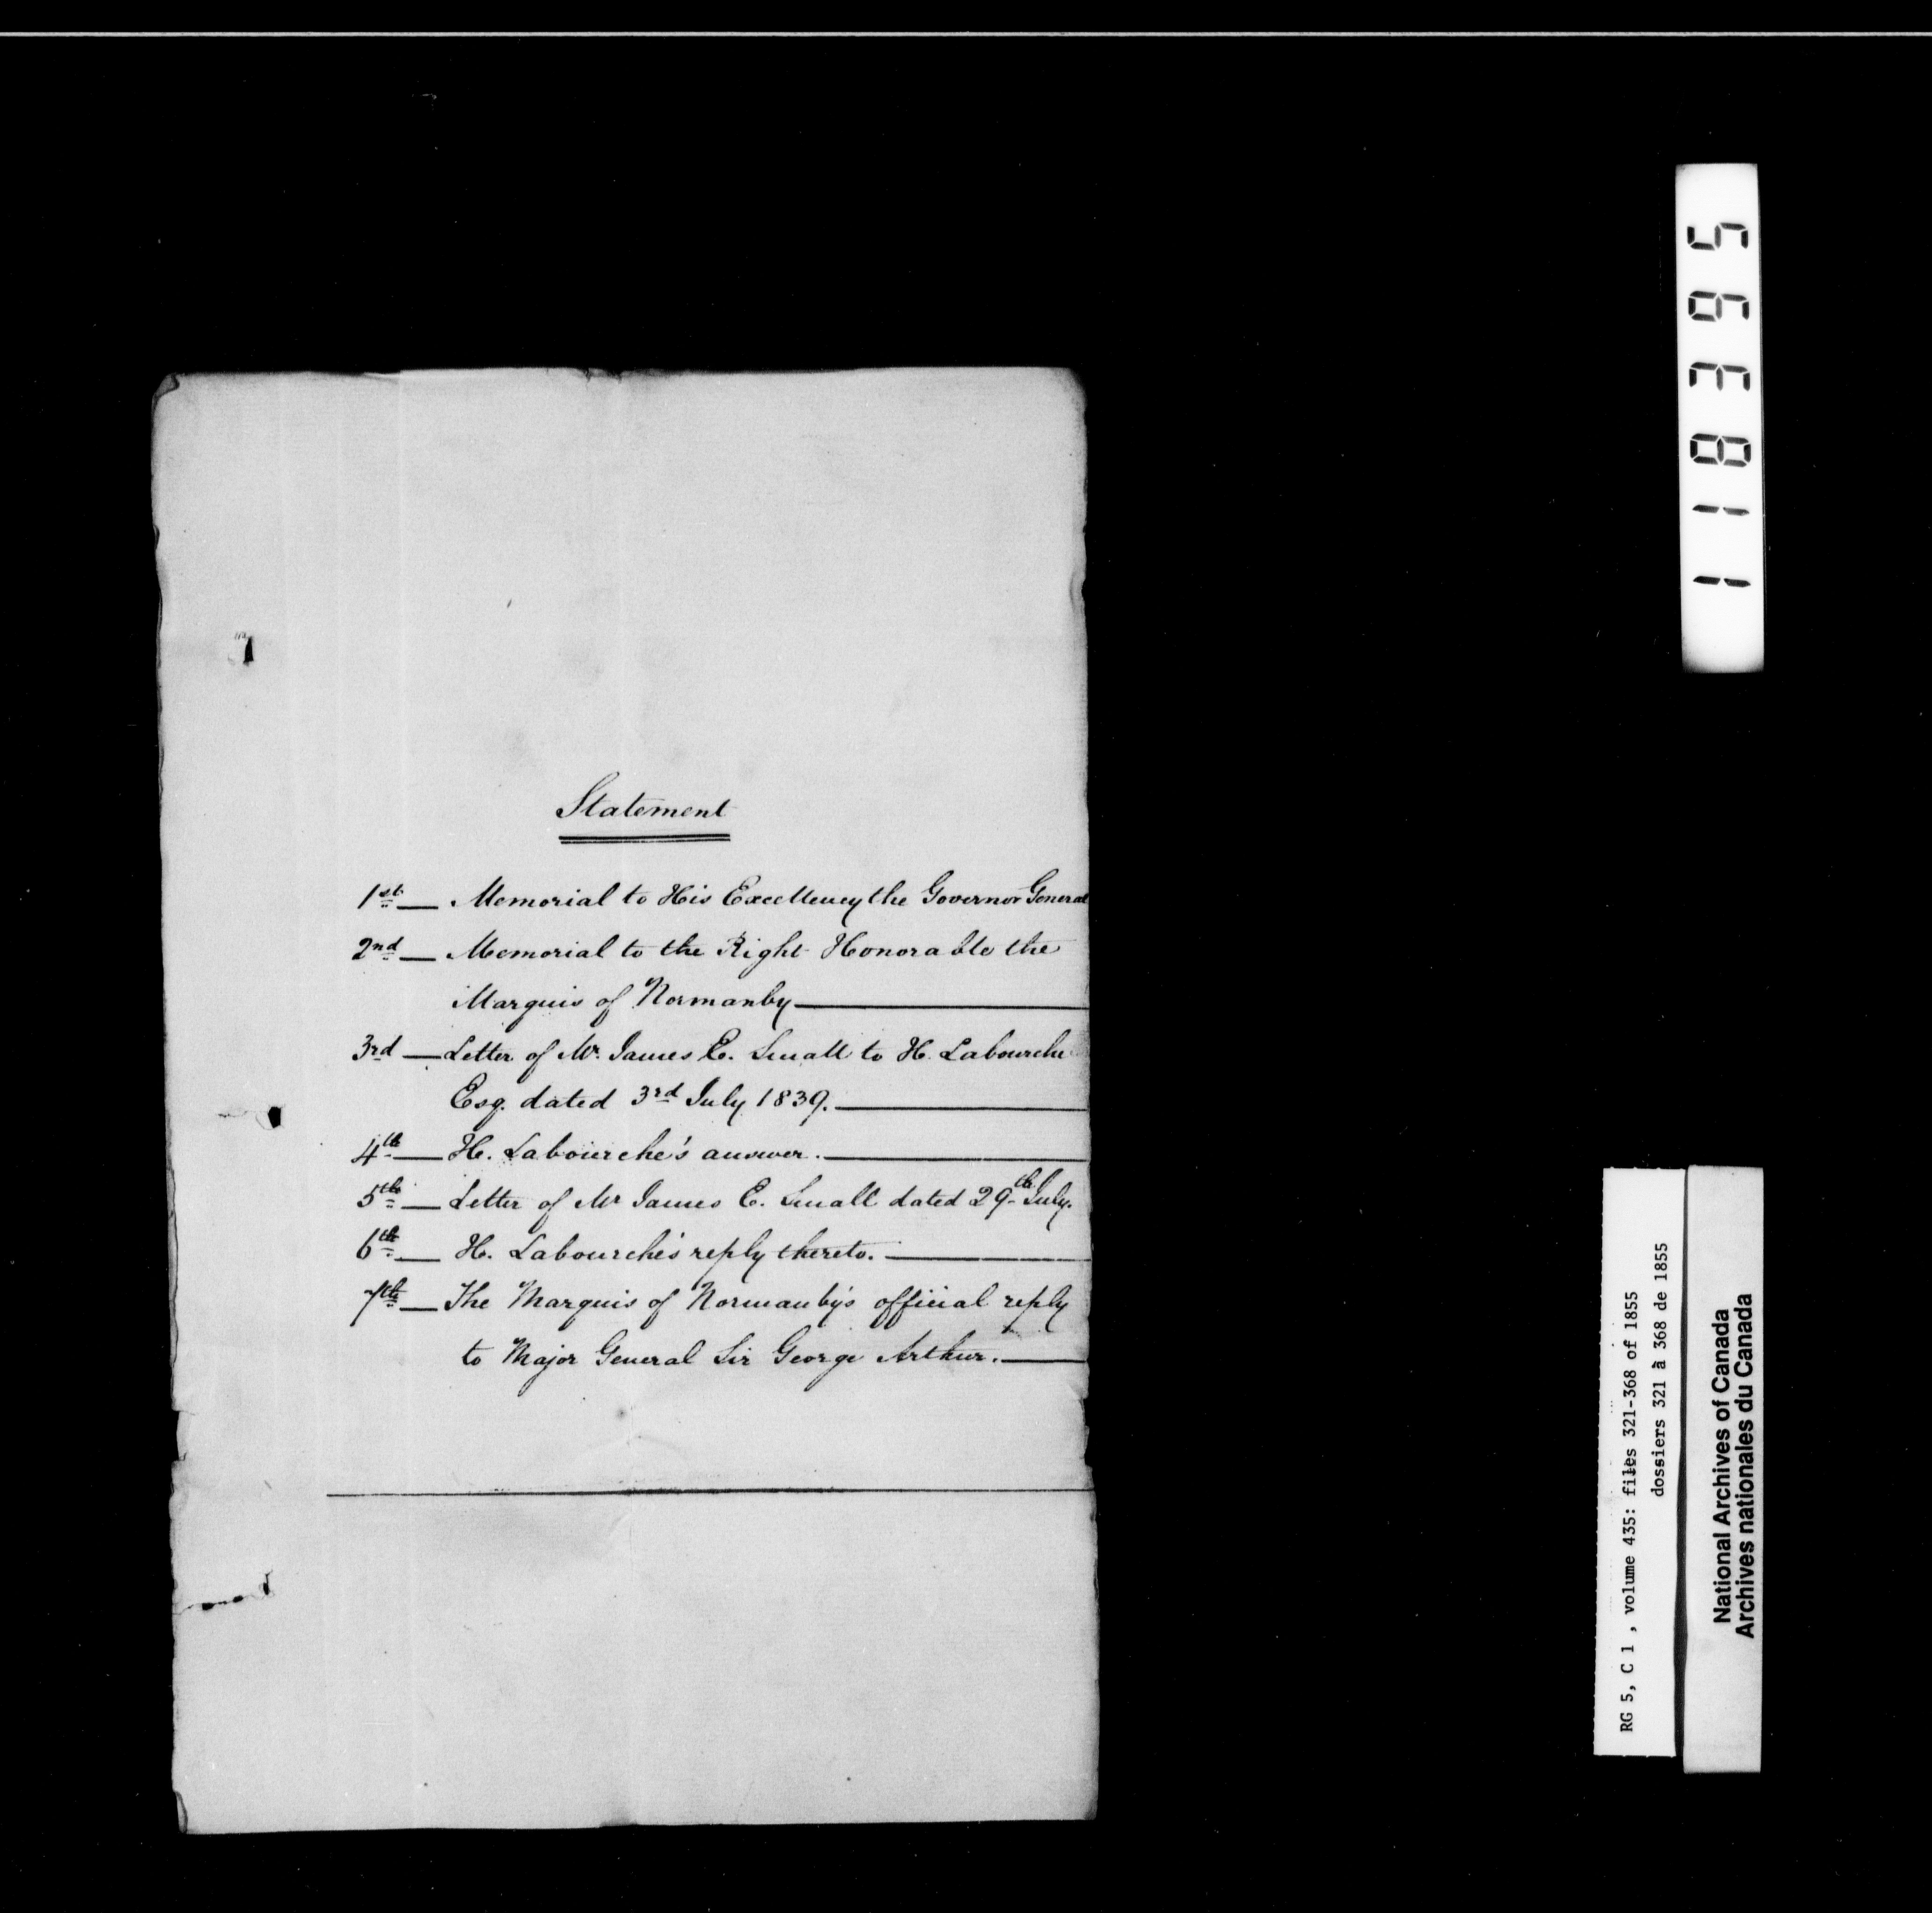 Statement
1st — Memorial to His Excellency the Governor General
2nd — Memorial to the Right Honorable the
Marquis of Normanby —
3rd — Letter of Mr. James E. Small to H. Labourche
Esq. dated 3rd July 1839. —
4th — H. Labourche's answer. —
5th — Letter of Mr James E. Small dated 29th July.
6th — H. Labourche's reply thereto. —
7th — The Marquis of Normanby's official reply
to Major General Sir George Arthur. —
118365
RG 5, C 1 , volume 435: files 321-368 of 1855
dossiers 321 à 368 de 1855
National Archives of Canada
Archives nationales du Canada